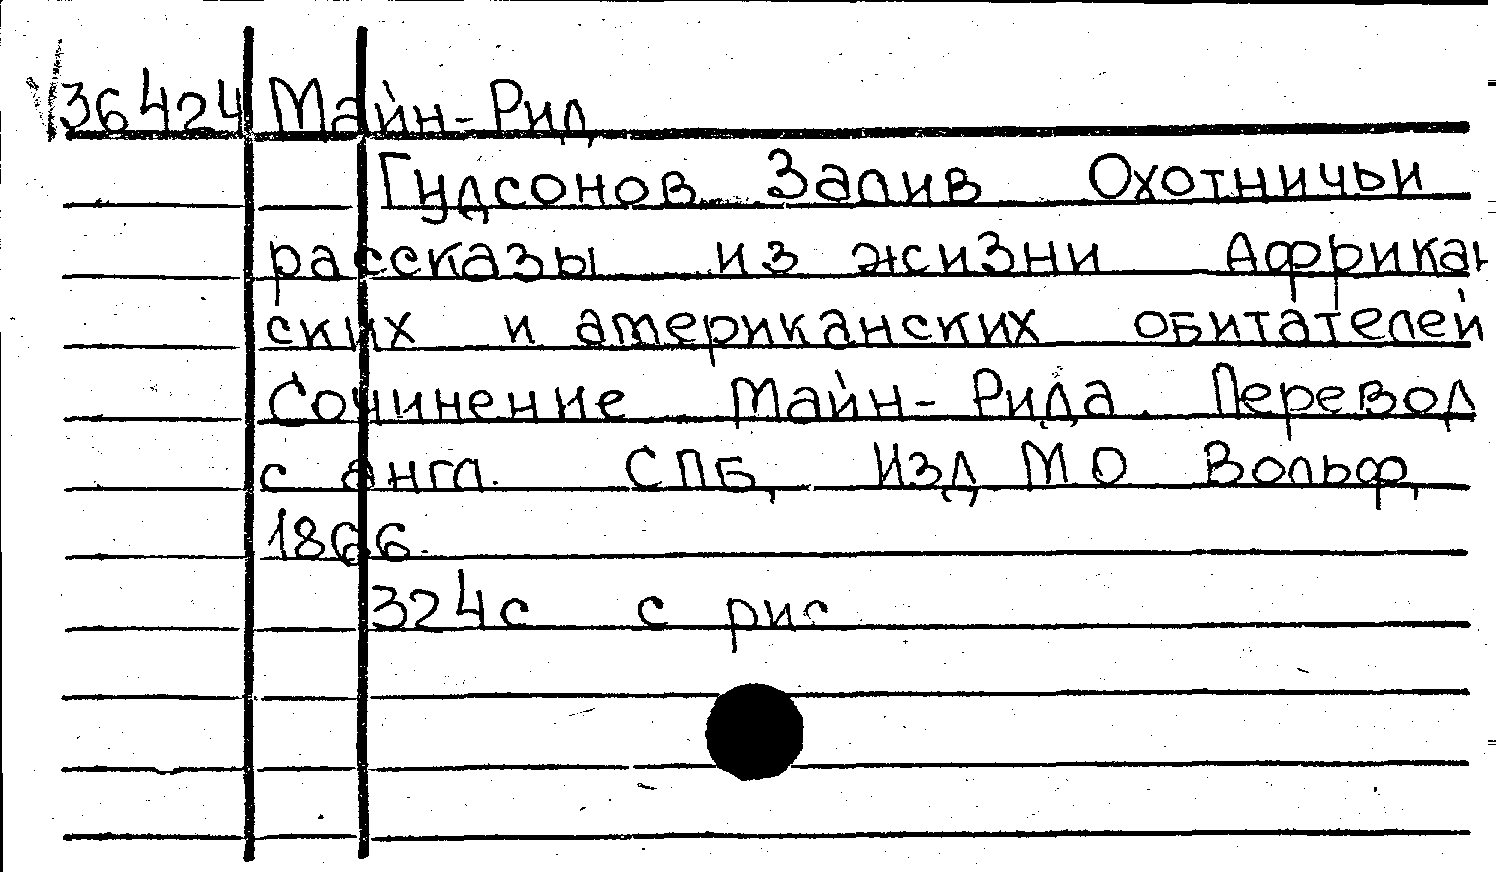 36424 Майн-Рид
Гудсонов Залив Охотничьи
рассказы из жизни Африкан
ских и американских обитателей
Сочинение Майн-Рида. Перевод
с англ. СПБ, Изд М О Вольф,
1866.
324с с рис